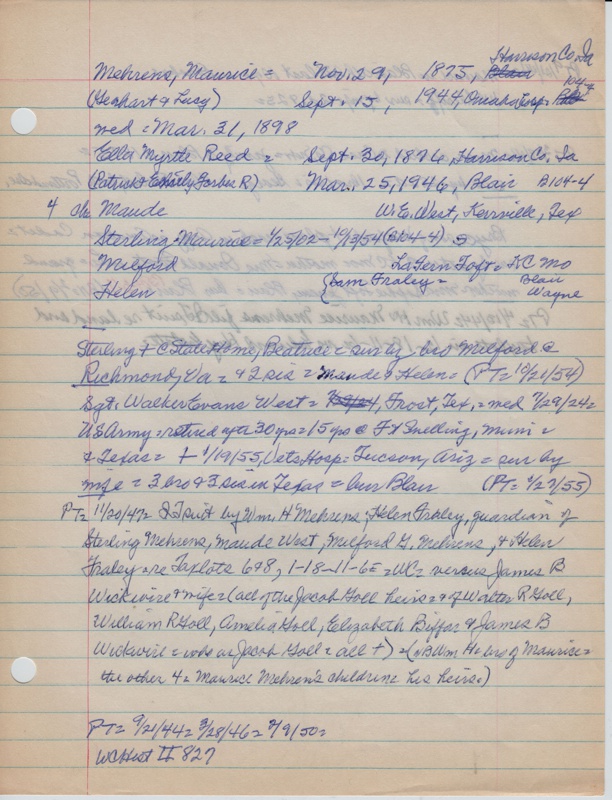 Harrison Co, Ia
Mehrens, Maurice = Nov. 29, 1875, Blair
(Gerhart & Lucy) Sept. 15, 1944, Omaha hosp.
med = Mar. 31, 1898
Ella Myrtle Reed = Sept. 30, 1876, Harrison Co, Ia
(Patrick & Emily Forbes R) Mar. 25, 1946, Blair B104-4
4 ch Maude W.E. West, Kerrville, Tex
Sterling Maurice = 1/25/02 - 10/13/54 (B104-4) S
Milford LaFern Toft = KC Mo
Helen {Sam Fraley = Blair
Wayne
Sterling + @ State Home, Beatrice = sur by bro Milford @
Richmond, Va = & 2 sis = Maude & Helen = (PT = 10/21/54)
Sgt. Walker Evans West = Frost, Tex. = med 7/29/24 =
US Army = retired after 30 yrs = 15 yrs @ Ft Snelling, Minn =
& Texas = + 1/19/55, Vets Hosp = Tucson, Ariz = sur by
wife = 3 bro & 3 sis in Texas = bur Blair (PT = 1/27/55)
PT = 11/20/47 = QT suit by Wm. H Mehrens, Helen Fraley, guardian of
Sterling Mehrens, Maude West, Milford G. Mehrens, & Helen
Fraley = re Taxlots 6 & 8, 1-18-11-6E = WC = versus James B
Wickwire & wife = (all of the Jacob Goll heirs = & of Walter R Goll,
William R Goll, Amelia Goll, Elizabeth Biffar & James B
Wickwire = as Jacob Goll = all +) = (NB Wm H = bro of Maurice =
the other 4 = Maurice Mehren's children = his heirs.)
PT = 9/21/44 = 3/28/46 = 2/9/50 =
WC Hist II 827